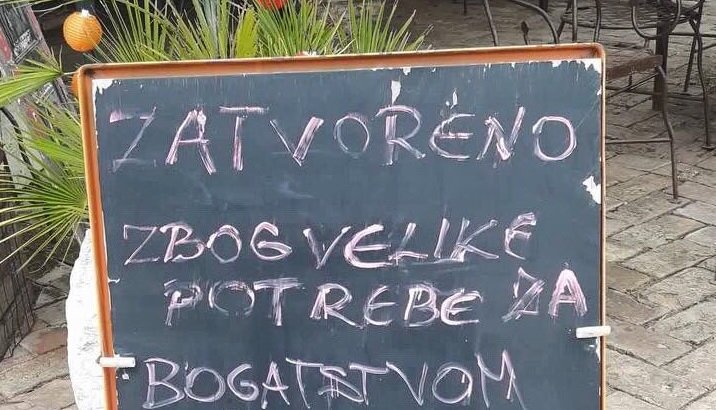 ZATVORENO
ZBOG VELIKE
POTREBE ZA
BOGATSTVOM